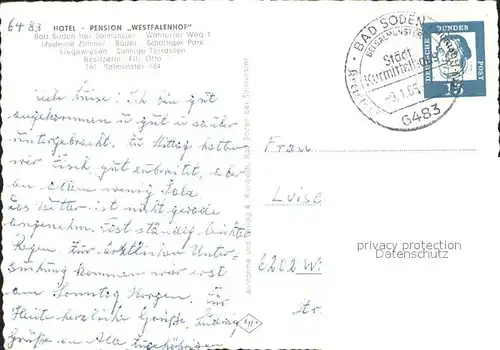 6483 HOTEL - PENSION „WESTFALENHOF"
Bad Soden bei Salmünster Wahlerter Weg 1
Moderne Zimmer Bäder Schattiger Park
Liegewiesen Sonnige Terrassen
Besitzerin: Elli Otto
Tel. Salmünster 484
Liebe Luise! Ich bin gut
angekommen u gut u sauber
untergebracht. Zu Mittag hatten
wir Fisch, gut zubereitet, aber
an allem wenig Salz
Das Wetter ist nicht gerade
angenehm. Fast ständig leichter
Regen. Zur ärztlichen Unter-
suchung kommen wir erst
am Sonntag Morgen. Für
Heute herzliche Grüße, Ludwig
Grüße an Alle Angehörigen
BAD SODEN
BEI SALMÜNSTER
Städt
Kurmittelhaus
6483
DEUTSCHE BUNDES POST
15
Frau
Luise
6202 Wi
Str.
privacy protection
Datenschutz